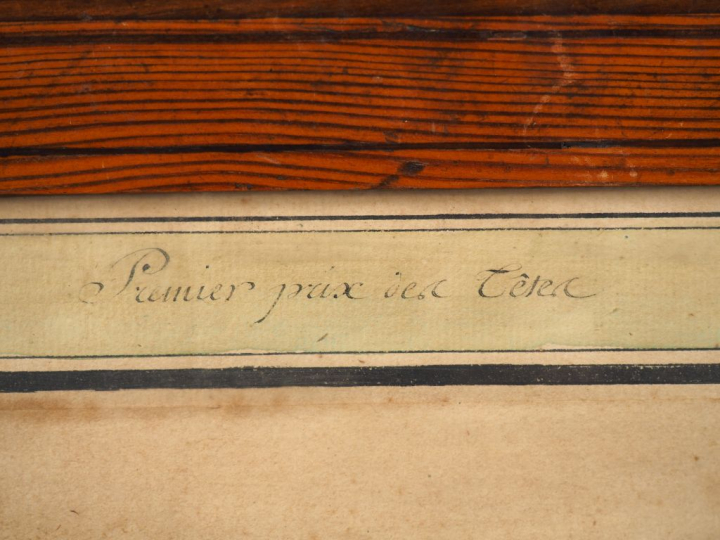 Premier prix des Têtes